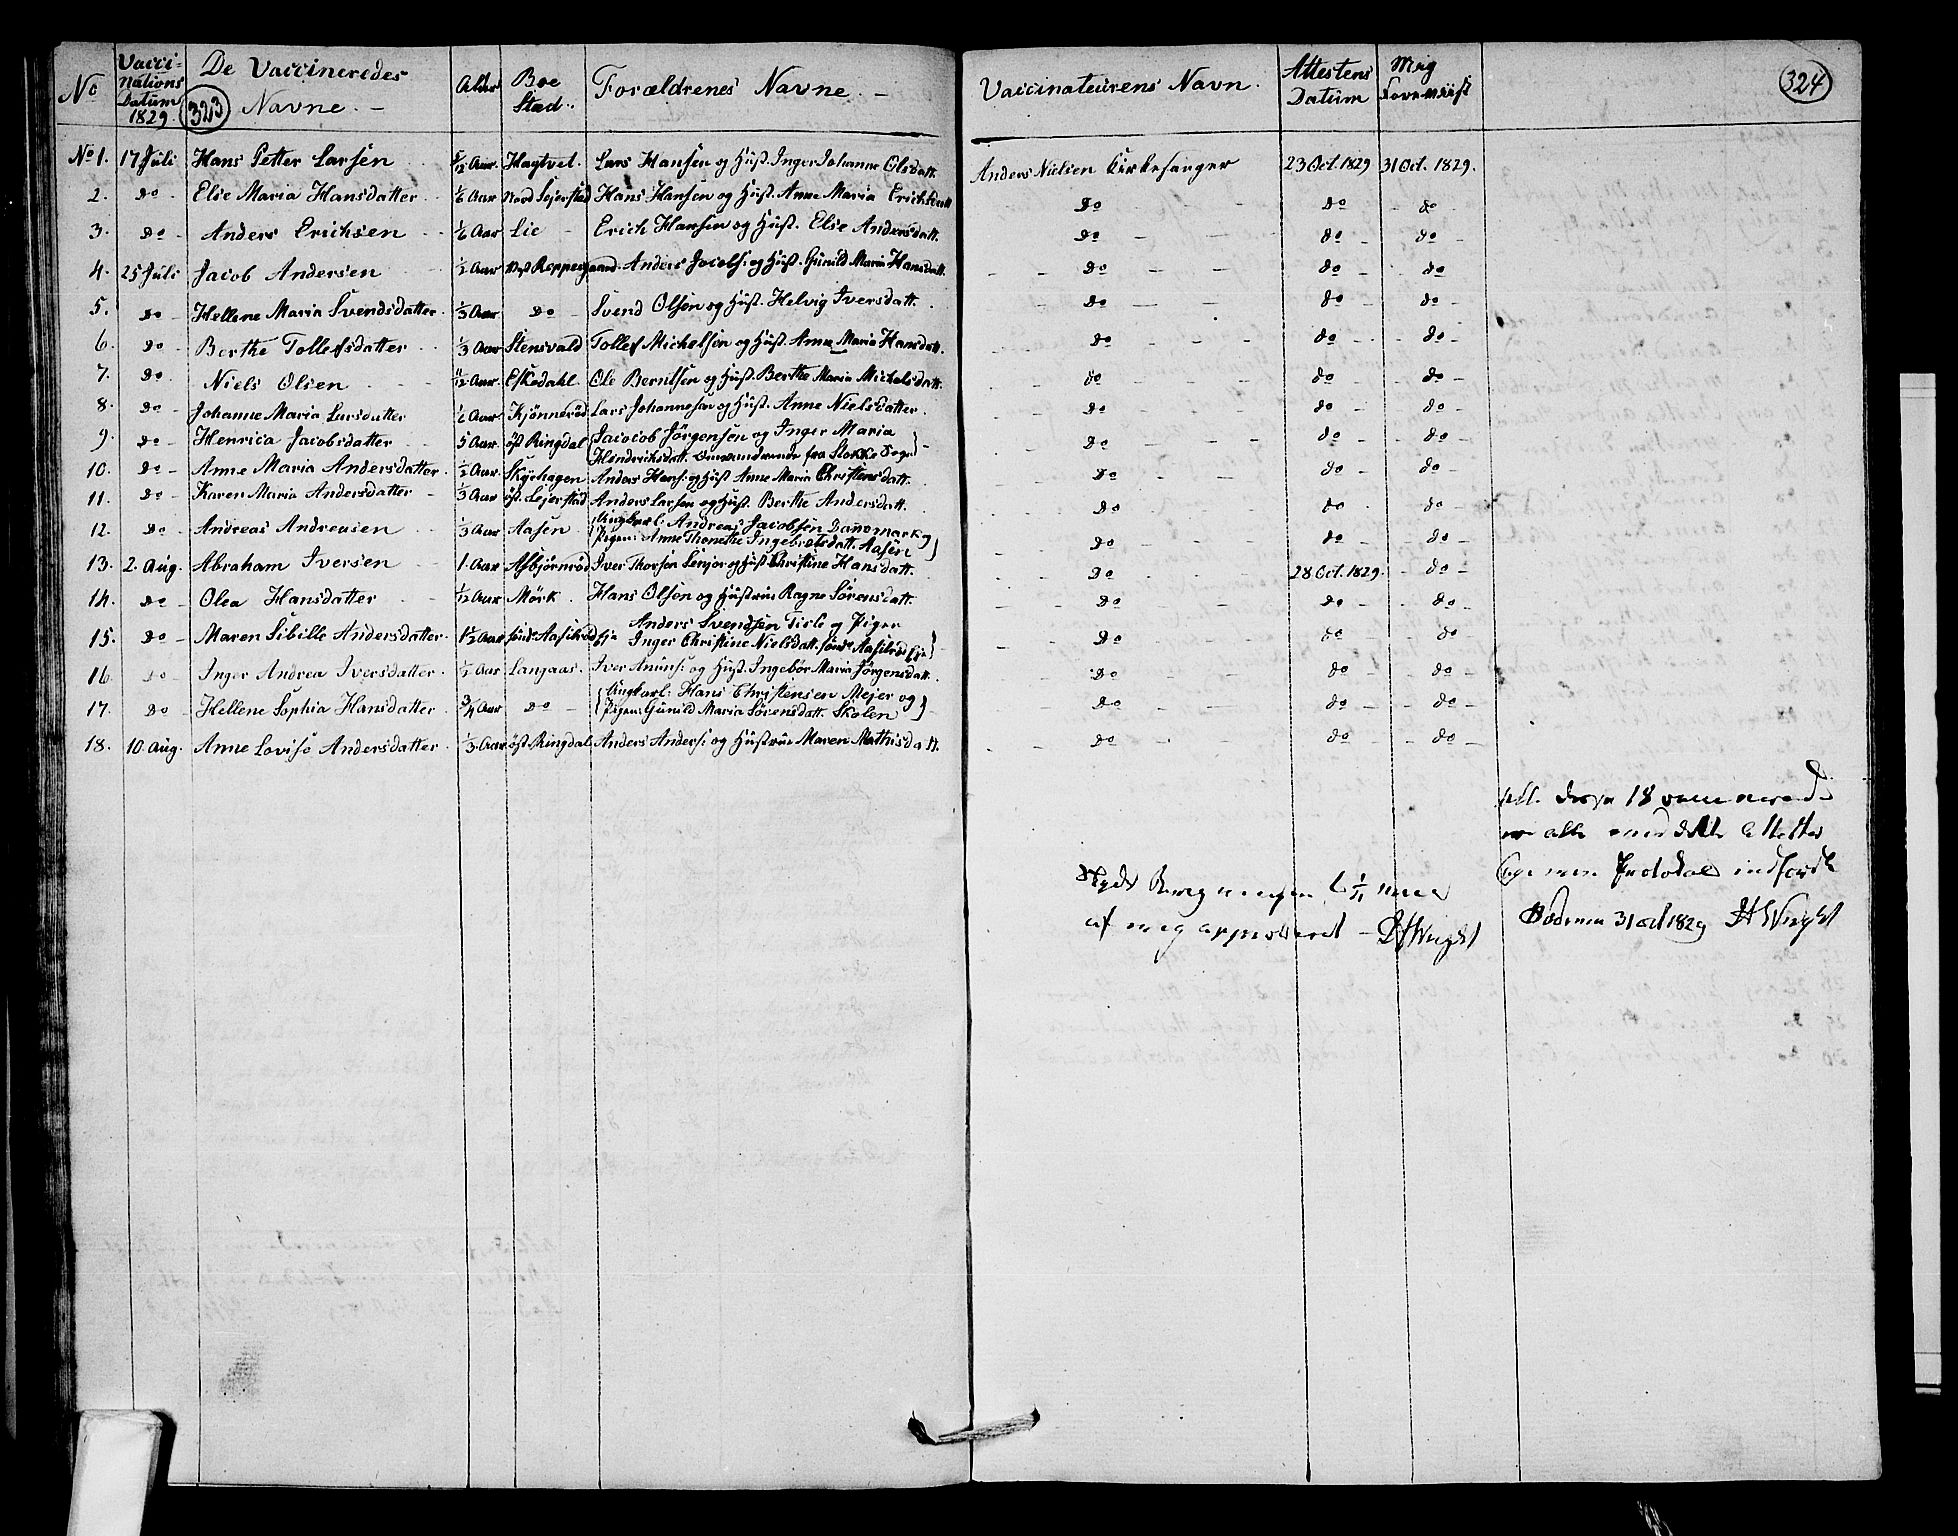 No Vaccinations Datum 1829 De Vaccineredes Navne. – Alder Boe Stæd. Forældrenes Navne. – Vaccinateurens Navn. Attestens Datum Mig Foreviist
323
324
No 1. 17 Juli Hans Petter Larsen Aar Haytvet Lars Hansen og Hust. Inger Johanne Olsdatt. Anders Nielsen Kirkesanger 23 Oct. 1829 31 Oct. 1829.
2. do - Else Maria Hansdatter 1/6 Aar Nord Lejerstad Hans Hansen og Hust. Anne Maria Erichsdatt do do do
3. do - Anders Erichsen 1/6 Aar Lie Erich Hansen og Hust. Else Andersdatt. do do do
4. 25 Juli Jacob Andersen 1/2 Aar Vest Reppegaard Anders Jacobs: og Hust. Gunild Maria Hansdatt. do do do
5. do - Hellene Maria Svendsdatter 1/3 Aar do - Svend Olsen og Hust. Helvig Iversdatt. do do do
6. do - Berthe Tollefsdatter 1/3 Aar Stensvald Tollef Michelsen og Hust. Anne Maria Hansdatt. do do do
7. do Niels Olsen Aar Eskedahl. Ole Berntsen og Hust. Berthe Maria Michelsdatt. do do do
8. do - Johanne Maria Larsdatter Aar Kjønnerød Lars Johannesen og Hust. Anne Nielsdatter. do do do
9. do - Henrica Jacobsdatter 5 Aar øst Ringdal Jacocob Jörgensen og Inger Maria do do do
Hendriksdatt. omvandrende fra Stokke Sogn
10. do - Anne Maria Andersdatter 1/2 Aar Skyehagen Anders Hans: og Hust Anne Maria Christensdatt. do do do
11. do - Karen Maria Andersdatter 1/3 Aar øst. Lejerstad Anders Larsen og Hust. Berthe Andersdatt. do do do
12. do - Andreas Andreasen 1/3 Aar Aasen Ungkarl: Andreas Jacobsen Dannemark og do do do
Pigen: Anne Thorethe Ingebretsdatt. Aasen
13. 2. Aug. Abraham Iversen 1. Aar Asbjørnrød Iver Thorsen Senjor og Hust Christine Hansdatt. do 28 Oct. 1829. do
14. do - Olea Hansdatter 1/12 Aar Mørk. Hans Olsen og Hustrue Ragne Sørensdatt. do do do
15. do - Maren Sibille Andersdatter. 1 1/2 Aar sønd. Aasilrød Eje Anders Svendsen Tiele og Piger do do do
Inger Christine Nielsdatt. sønd. Aasilrød Eje
16. do - Inger Andrea Iversdatter. 1/2 Aar Langaas. Iver Amuns: og Hust. Ingebor Maria Jørgensdatt. do do do
17. do - Hellene Sophia Hansdatter 3/4 Aar do - Ungkarl: Hans Christensen Mejer og do do do
Pigen: Gunild Maria Sörensdatt. Skolen
18. 10. Aug. Anne Lovise Andersdatter. 1/3 Aar øst Ringdal Anders Anders: og Hustrue Maren Mathisdatt. do do do
disse 18 vaccinerede
er alle med dette Attester
Protocol indførdt
31 oct 1829 HWright
af mig